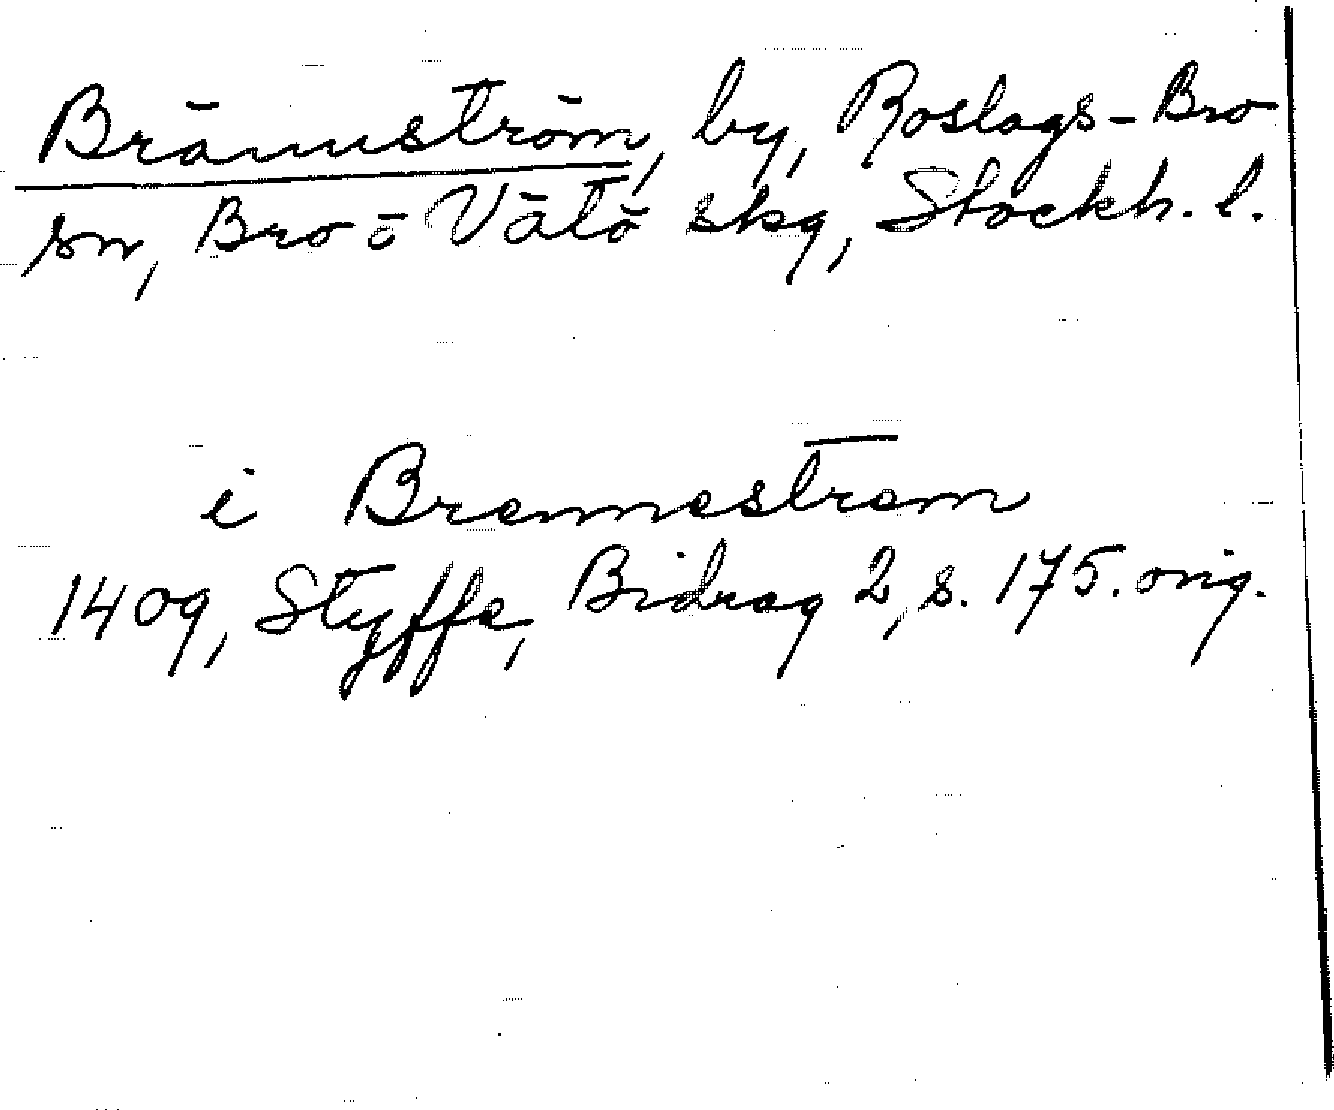 Brännström, by, Roslags-Bro
sn, Bro o Vätö skg, Stockh. l.
i Brennestrøm
1409, Styffe, Bidrag 2, s. 175. orig.